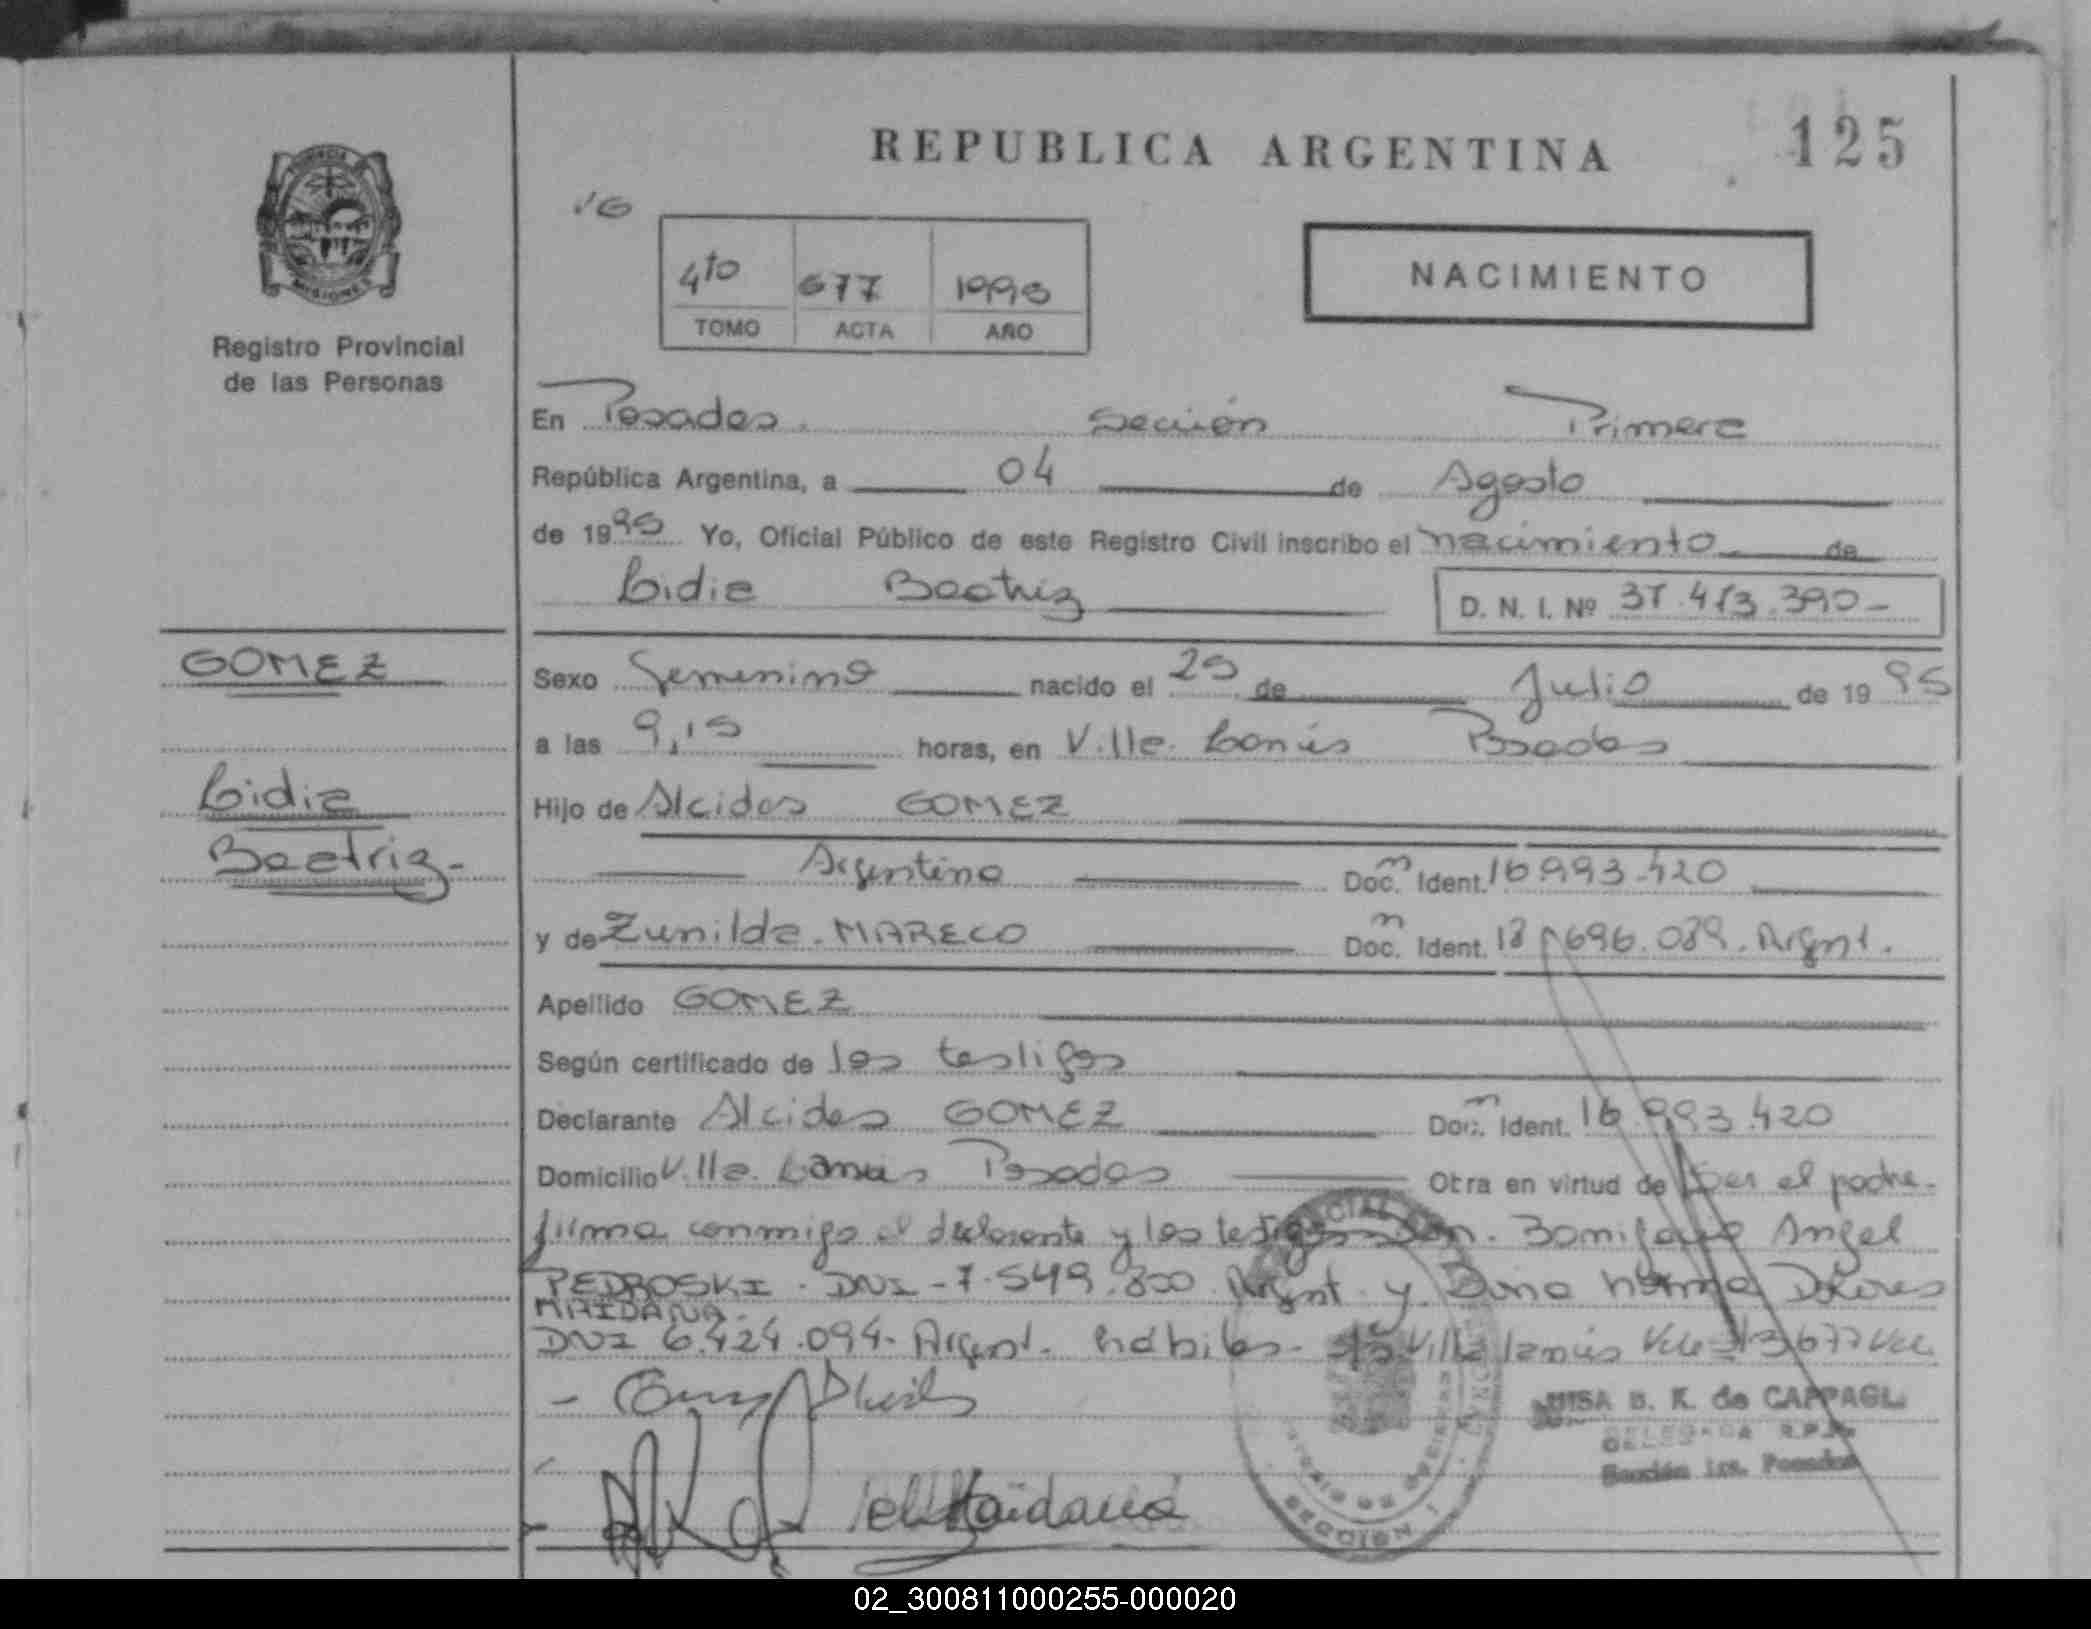 REPUBLICA ARGENTINA
125
MISIONES
Registro Provincial
de las Personas
4to 677 1995
TOMO ACTA AÑO
NACIMIENTO
En Posadas. Sección Primera
República Argentina, a 04 de Agosto
de 1995 Yo, Oficial Público de este Registro Civil inscribo el nacimiento de
Lidia Beatriz D. N. I. Nº 37.413.390-
GOMEZ
Lidia
Beatriz-
Sexo Femenino nacido el 25 de Julio de 19 95
a las 9,15 horas, en Villa Lanús Posadas
Hijo de Alcides GOMEZ
Argentino Doc. Ident. 16.993.420
y de Zunilda MARECO Doc. Ident. 18.696.089. Argnt.
Apellido GOMEZ
Según certificado de los testigos
Declarante Alcides GOMEZ Doc. Ident. 16.993.420
Domicilio Villa Lanús Posadas Otra en virtud de ser el padre.
firma conmigo el declarante y los testigos Don. Bonifacio Angel
PEDROSKI. DNI-7.549.800 Argnt. y Doña Norma Dolores
MAIDANA.
DNI 6.424.094- Argent. hábiles. Villa Lanús
LUISA B. K. de CAPPAGLI
DELEGADA R.P.P.
Sección 1ra. Posadas
Maidana
SECCION 1
02_300811000255-000020